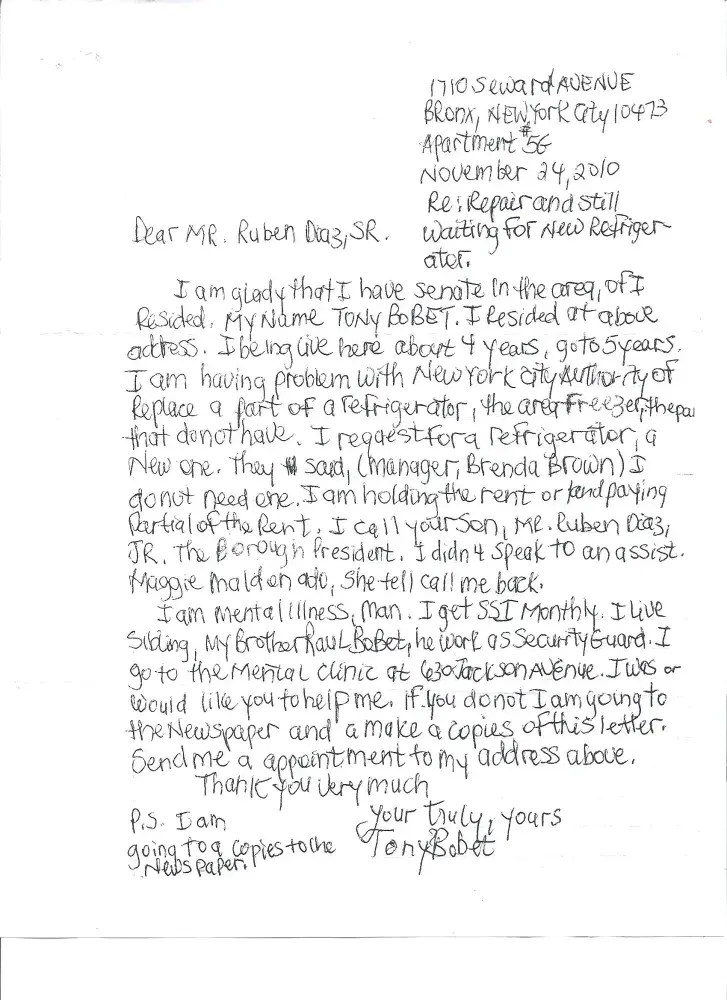 1710 Seward AVENUE
BRONX, NEW York City 10473
Apartment #5G
NOVEMBER 24, 2010
Re: Repair and still
Dear MR. Ruben Diaz, SR. waiting for New Refriger-
ater.
I am glady that I have senate in the area, of I
Resided. MY Name TONY BOBET. I Resided at above
address. I being live here about 4 years, go to 5 years.
I am having problem with New York City Authority of
Replace a part of a refrigerator, the area Freezer, the pa
that do not have. I request for a refrigerator, a
New one. They said, (manager, Brenda Brown) I
do not need one. I am holding the rent or paying
Partial of the Rent. I call your Son, MR. Ruben Diaz,
JR. The Borough President. I didn't speak to an assist.
Maggie Maldonado, she tell call me back.
I am mental illness, man. I get SSI Monthly. I live
Sibling, My Brother Raul Bobet, he work as Security Guard. I
go to the Mental Clinic at 630 Jackson AVEnue. I was or
would like you to help me. If you do not I am going to
the Newspaper and a make a copies of this letter.
Send me a appointment to my address above.
Thank you very much
P.S. I am your truly, yours
going to a copies to the Tony Bobet
Newspaper.